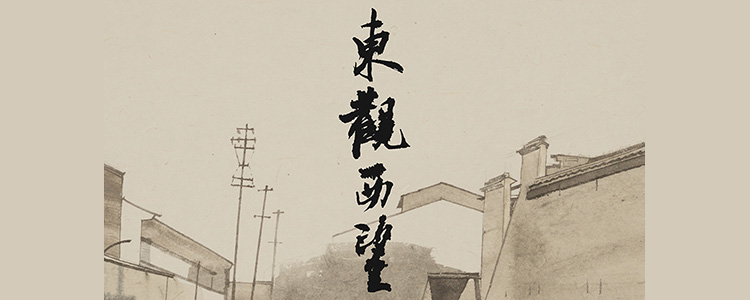 東觀西望